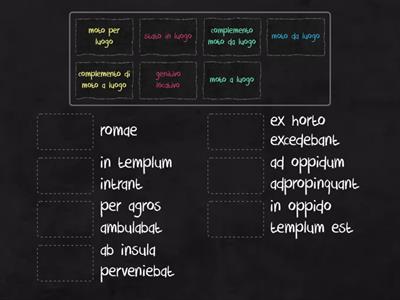 moto per
luogo
stato in luogo
complemento
moto da luogo
moto da luogo
complemento di
moto a luogo
genitivo
locativo
moto a luogo
romae
in templum
intrant
per agros
ambulabat
ab insula
perveniebat
ex horto
excedebant
ad oppidum
adpropinquant
in oppido
templum est